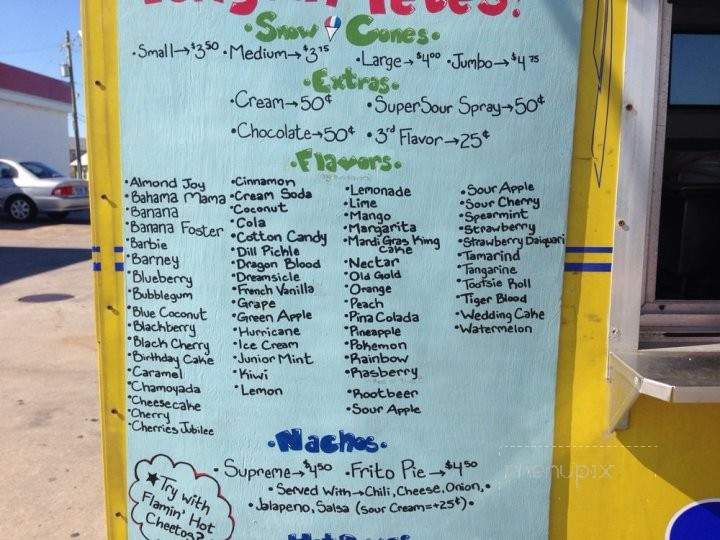 Snow Cones
• Small→$3.50 • Medium→$3.75 • Large→$4.00 • Jumbo→$4.75
• Extras •
• Cream→50¢ • SuperSour Spray→50¢
• Chocolate→50¢ • 3rd Flavor→25¢
• Flavors •
• Almond Joy
• Bahama Mama
• Banana
• Banana Foster
• Barbie
• Barney
• Blueberry
• Bubblegum
• Blue Coconut
• Blackberry
• Black Cherry
• Birthday Cake
• Caramel
• Chamoyada
• Cheesecake
• Cherry
• Cherries Jubilee
• Cinnamon
• Cream Soda
• Coconut
• Cola
• Cotton Candy
• Dill Pickle
• Dragon Blood
• Dreamsicle
• French Vanilla
• Grape
• Green Apple
• Hurricane
• Ice Cream
• Junior Mint
• Kiwi
• Lemon
• Lemonade
• Lime
• Mango
• Margarita
• Mardi Gras King
Cake
• Nectar
• Old Gold
• Orange
• Peach
• Pina Colada
• Pineapple
• Pokemon
• Rainbow
• Rasberry
• Rootbeer
• Sour Apple
• Sour Apple
• Sour Cherry
• Spearmint
• Strawberry
• Strawberry Daiquari
• Tamarind
• Tangarine
• Tootsie Roll
• Tiger Blood
• Wedding Cake
• Watermelon
• Nachos •
• Supreme→$4.50 • Frito Pie→$4.50
• Served With→Chili, Cheese, Onion, •
• Jalapeno, Salsa (sour Cream=+25¢) •
★Try with
Flamin' Hot
Cheetos?
menupix